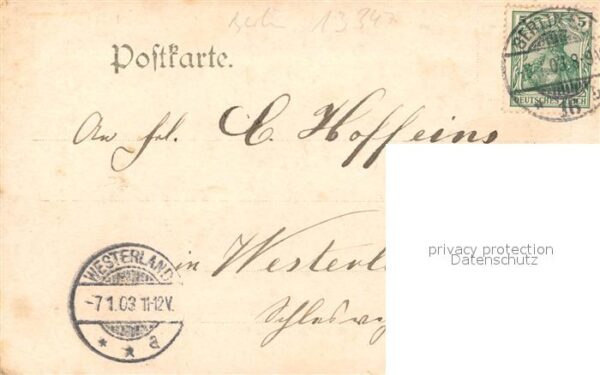 Berlin 13347
Postkarte.
BERLIN
5
DEUTSCHES REICH
16
An frl. C. Hoffeins
privacy protection
Datenschutz
in Westerl
Schlesw
WESTERLAND
-7 1.03 11-12V.
* * a